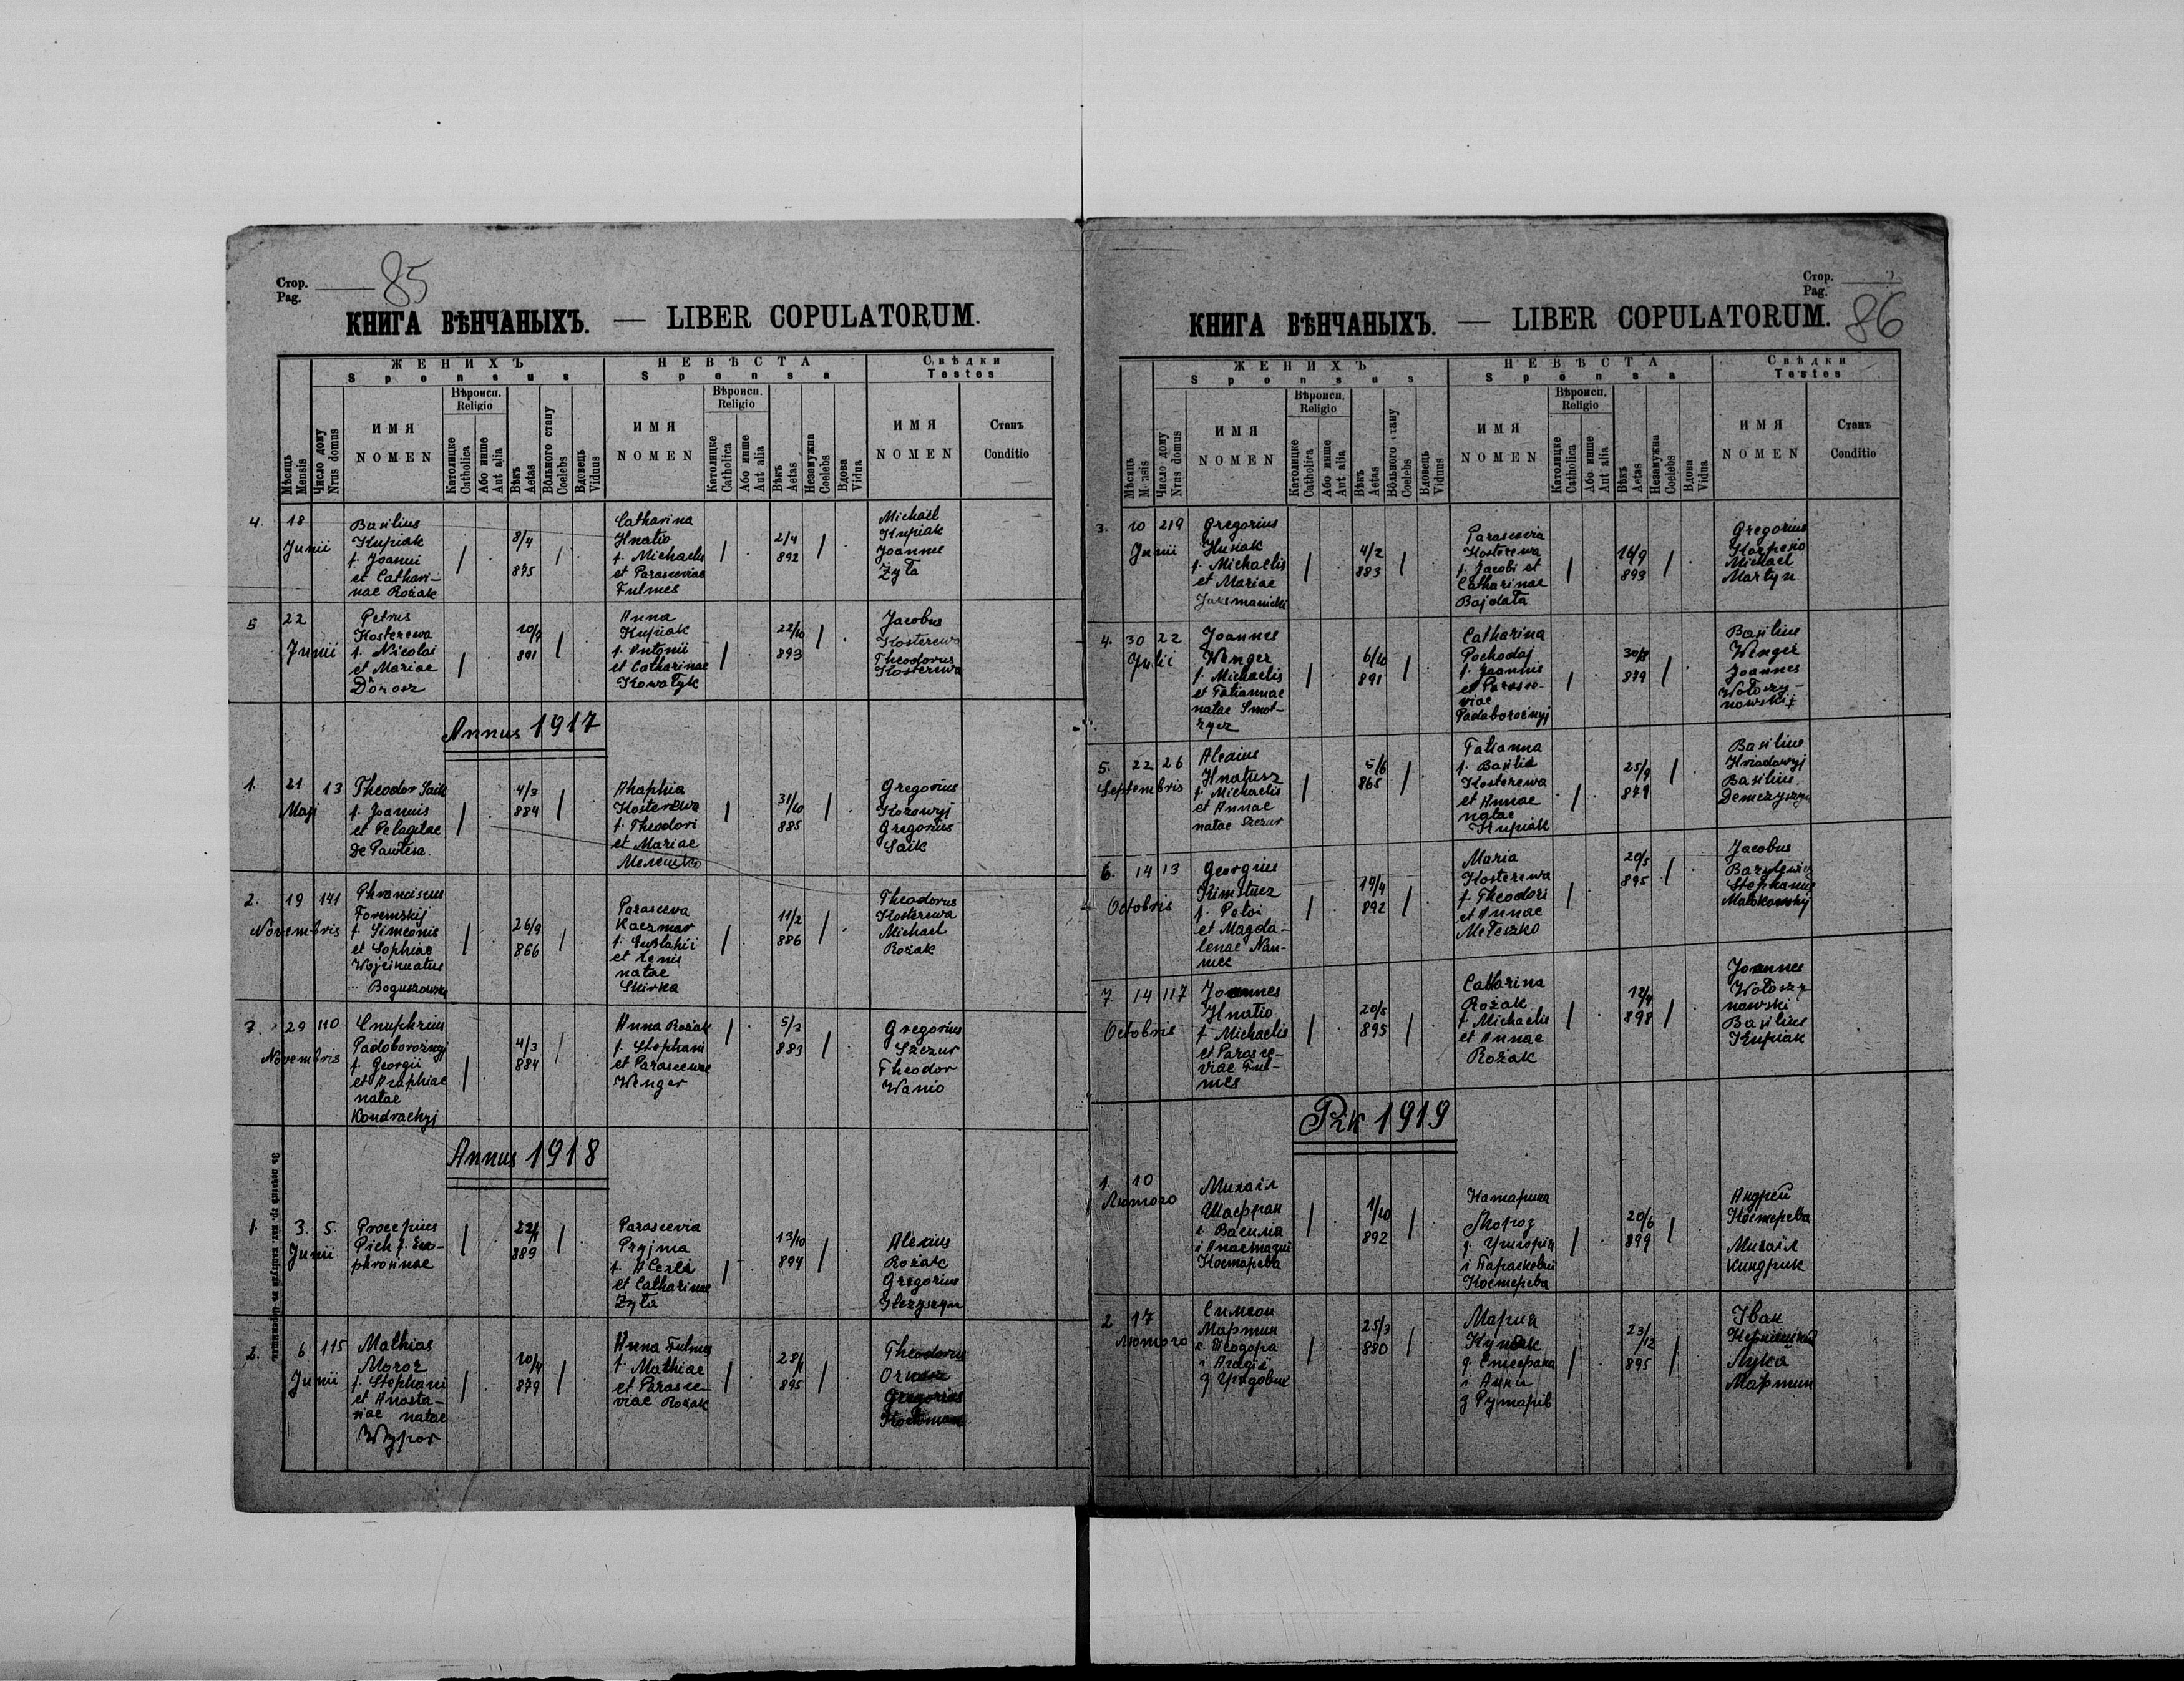 Стор.
Pag.
85
КНИГА ВѢНЧАНЫХЪ. — LIBER COPULATORUM.
ЖЕНИХЪ
Sponsus
НЕВѢСТА
Sponsa
Свѣдки
Testes
Мѣсяць
Mensis
Число дому
Nrus domus
ИМЯ
NOMEN
Вѣроисп.
Religio
Католицке
Catholica
Або инше
Aut alia
Вѣкъ
Aetas
Вôльного стану
Coelebs
Вдовець
Viduus
ИМЯ
NOMEN
Вѣроисп.
Religio
Католицке
Catholica
Або инше
Aut alia
Вѣкъ
Aetas
Незамужна
Coelebs
Вдова
Vidua
ИМЯ
NOMEN
Станъ
Conditio
4.
18
Junii
Basilius
Kupiak
f. Joannis
et Cathari-
nae Rożak
8/4
875
Catharina
Hnatio
f. Michaelis
et Parasceviae
Fulmes
2/4
892
Michael
Kupiak
Joannes
Żyła
5
22
Junii
Petrus
Kosterewa
f. Nicolai
et Mariae
Dorosz
891
Anna
Kupiak
f. Antonii
et Catharinae
Kowałyk
22/10
893
Jacobus
Kosterewa
Theodorus
Kosterewa
Annus 1917
1.
21
Maji
13
Theodor Saik
f. Joannis
et Pelagiae
de Pawłesa.
4/3
884
Ahaphia
Kosterewa
f. Theodori
et Mariae
Мелешко
31/10
885
Gregorius
Kozowyj
Gregorius
Saik
2.
19
Novembris
141
Phranciscus
Foremskij
f. Simeonis
et Sophiae
Boguszowska
26/9
866
Parasceva
Kaczmar
f. Eustahii
et Xenis
natae
Skirka
11/2
886
Theodorus
Kosterewa
Michael
Rożak
3.
29
Novembris
110
Onuphrius
Padoborożnyj
f. Georgii
et Ahaphiae
natae
Kondrachyj
4/3
884
Anna Rożak
f. Stephani
et Parascevae
Wenger
5/3
883
Gregorius
Szczur
Theodor
Wanio
Annus 1918
1.
3.
Junii
5.
Procopius
Pich f. Eu-
phrosinae
889
Parascevia
Pryjma
f. Alexii
et Catharinae
Żyła
13/10
894
Alexius
Rożak
Gregorius
Ilczyszyn
2.
6
Junii
115
Mathias
Moroz
f. Stephani
et Anasta-
siae natae
Wypor
20/4
879
Anna Fulmes
f. Mathiae
et Parasce-
viae Rożak
895
Theodorus
Gregorius
Стор.
Pag.
86
КНИГА ВѢНЧАНЫХЪ. — LIBER COPULATORUM.
ЖЕНИХЪ
Sponsus
НЕВѢСТА
Sponsa
Свѣдки
Testes
Мѣсяць
Число дому
Nrus domus
ИМЯ
NOMEN
Вѣроисп.
Religio
Католицке
Catholica
Або инше
Aut alia
Вѣкъ
Aetas
Coelebs
Вдовець
Viduus
ИМЯ
NOMEN
Вѣроисп.
Religio
Католицке
Catholica
Або инше
Aut alia
Вѣкъ
Aetas
Незамужна
Coelebs
Вдова
Vidua
ИМЯ
NOMEN
Станъ
Conditio
3.
10
Junii
219
Gregorius
Husak
f. Michaelis
et Mariae
4/2
883
Parascevia
Kosterewa
f. Jacobi et
Catharinae
Bajdała
16/9
893
Gregorius
Michael
Martyn
4.
30
Julii
22
Joannes
Wenger
f. Michaelis
et Tatiannae
natae Smol-
6/10
891
Catharina
Pochodaj
f. Joannis
et Parasce-
viae
Padaborożnyj
879
Basilius
Wenger
Joannes
Wołoszy-
nowskij
5.
22
Septembris
26
Alexius
Hnatusz
f. Michaelis
et Annae
natae Szczur
5/6
865
Tatianna
f. Basilii
Kosterewa
et Annae
natae
Kupiak
25/9
879
Basilius
Basilius
6.
14
Octobris
13
Georgius
f. Petri
et Magda-
lenae
19/4
892
Maria
Kosterewa
f. Theodori
et Annae
Meleszko
20/5
895
Jacobus
Stephanus
7
14
Octobris
117
Joannes
Hnatio
f. Michaelis
et Parasce-
viae Ful-
mes
20/5
895
Catharina
Rożak
f. Michaelis
et Annae
Rożak
898
Joannes
Wołoszy-
nowski
Basilius
Kupiak
Рік 1919
1.
10
Лютого
Михаіл
Шафран
с. Василя
і Анастазиі
Костерева
1/10
892
Катарина
Мороз
д. Григорія
і Параскевиі
Костерева
20/6
899
Андрей
Костерева
Михаіл
Киндрик
2
17
Лютого
Симеон
Мартин
с. Теодора
25/3
880
Мария
Купяк
д. Стефана
і Анни
23/12
895
Іван
Лука
Мартин